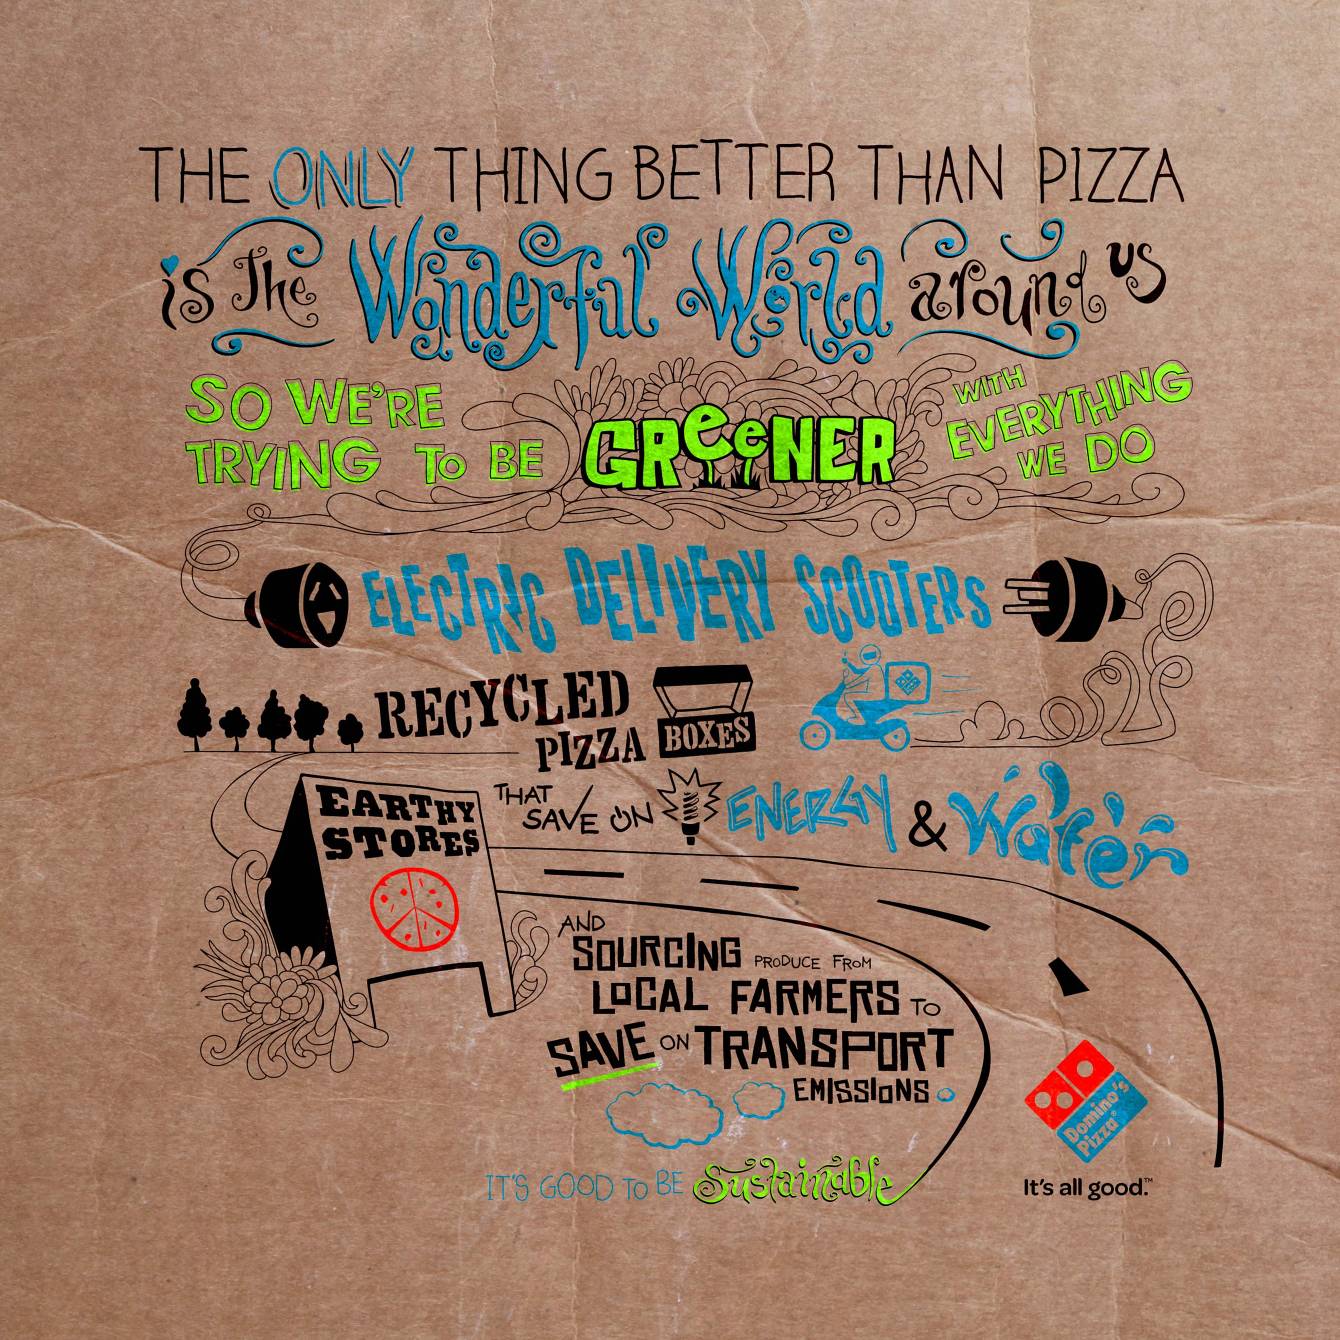 THE ONLY THING BETTER THAN PIZZA
is The Wonderful World around us
SO WE'RE
TRYING To BE GReeNER
WITH
EVERYTHING
WE DO
ELECTRIC DELIVERY SCOOTERS
RECYCLED
PIZZA BOXES
EARTHY
STORES
THAT
SAVE ON ENERGY & Water
AND
SOURCING PRODUCE FROM
LOCAL FARMERS TO
SAVE ON TRANSPORT
EMISSIONS
IT'S GOOD TO BE Sustainable
Domino's
Pizza®
It's all good.™